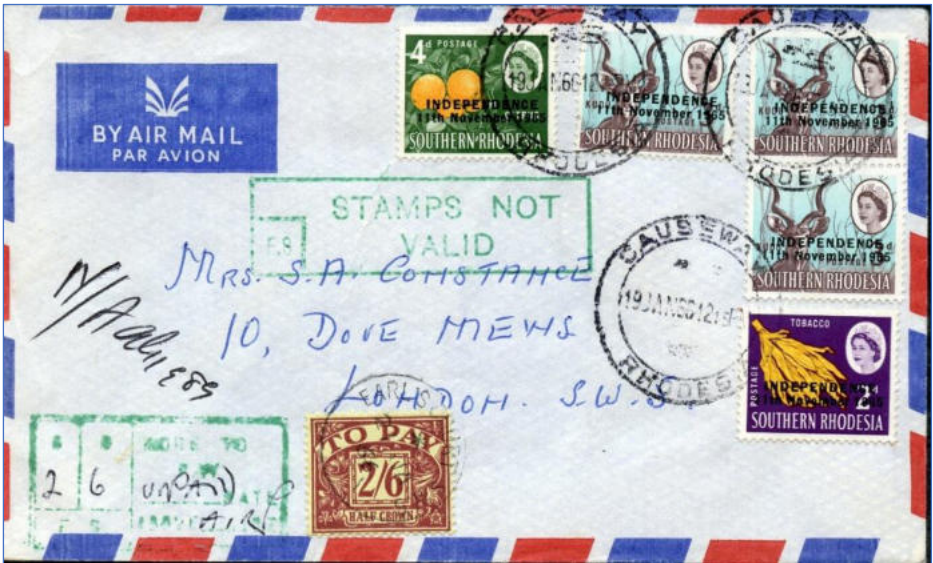 BY AIR MAIL
PAR AVION
4d POSTAGE
INDEPENDENCE
11th November 1965
SOUTHERN RHODESIA
INDEPENDENCE
11th November 1965
SOUTHERN RHODESIA
INDEPENDENCE
11th November 1965
SOUTHERN RHODESIA
INDEPENDENCE
11th November 1965
SOUTHERN RHODESIA
TOBACCO
POSTAGE
INDEPENDENCE
11th November 1965
SOUTHERN RHODESIA
CAUSEWAY
19 JAN 66 12
RHODESIA
CAUSEWAY
RHODESIA
CAUSEWAY
19 JAN 66 12
RHODESIA
STAMPS NOT
VALID
F.S
MRS. S.A. CONSTANCE
10, DOVE MEWS
LONDON. S.W.5.
MORE TO
2 6 UNPAID
AIR
F S
TO PAY
2/6
HALF CROWN